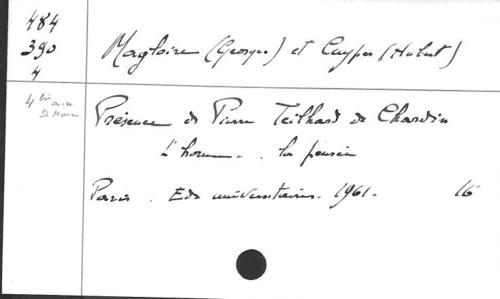 484
390
4
Magloire (Georges) et Cuypers (Hubert)
4 bis
Présence de Pierre Teilhard de Chardin
L'homme - . la pensée
Paris . Eds universitaires. 1961. 16